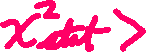 x²stat >